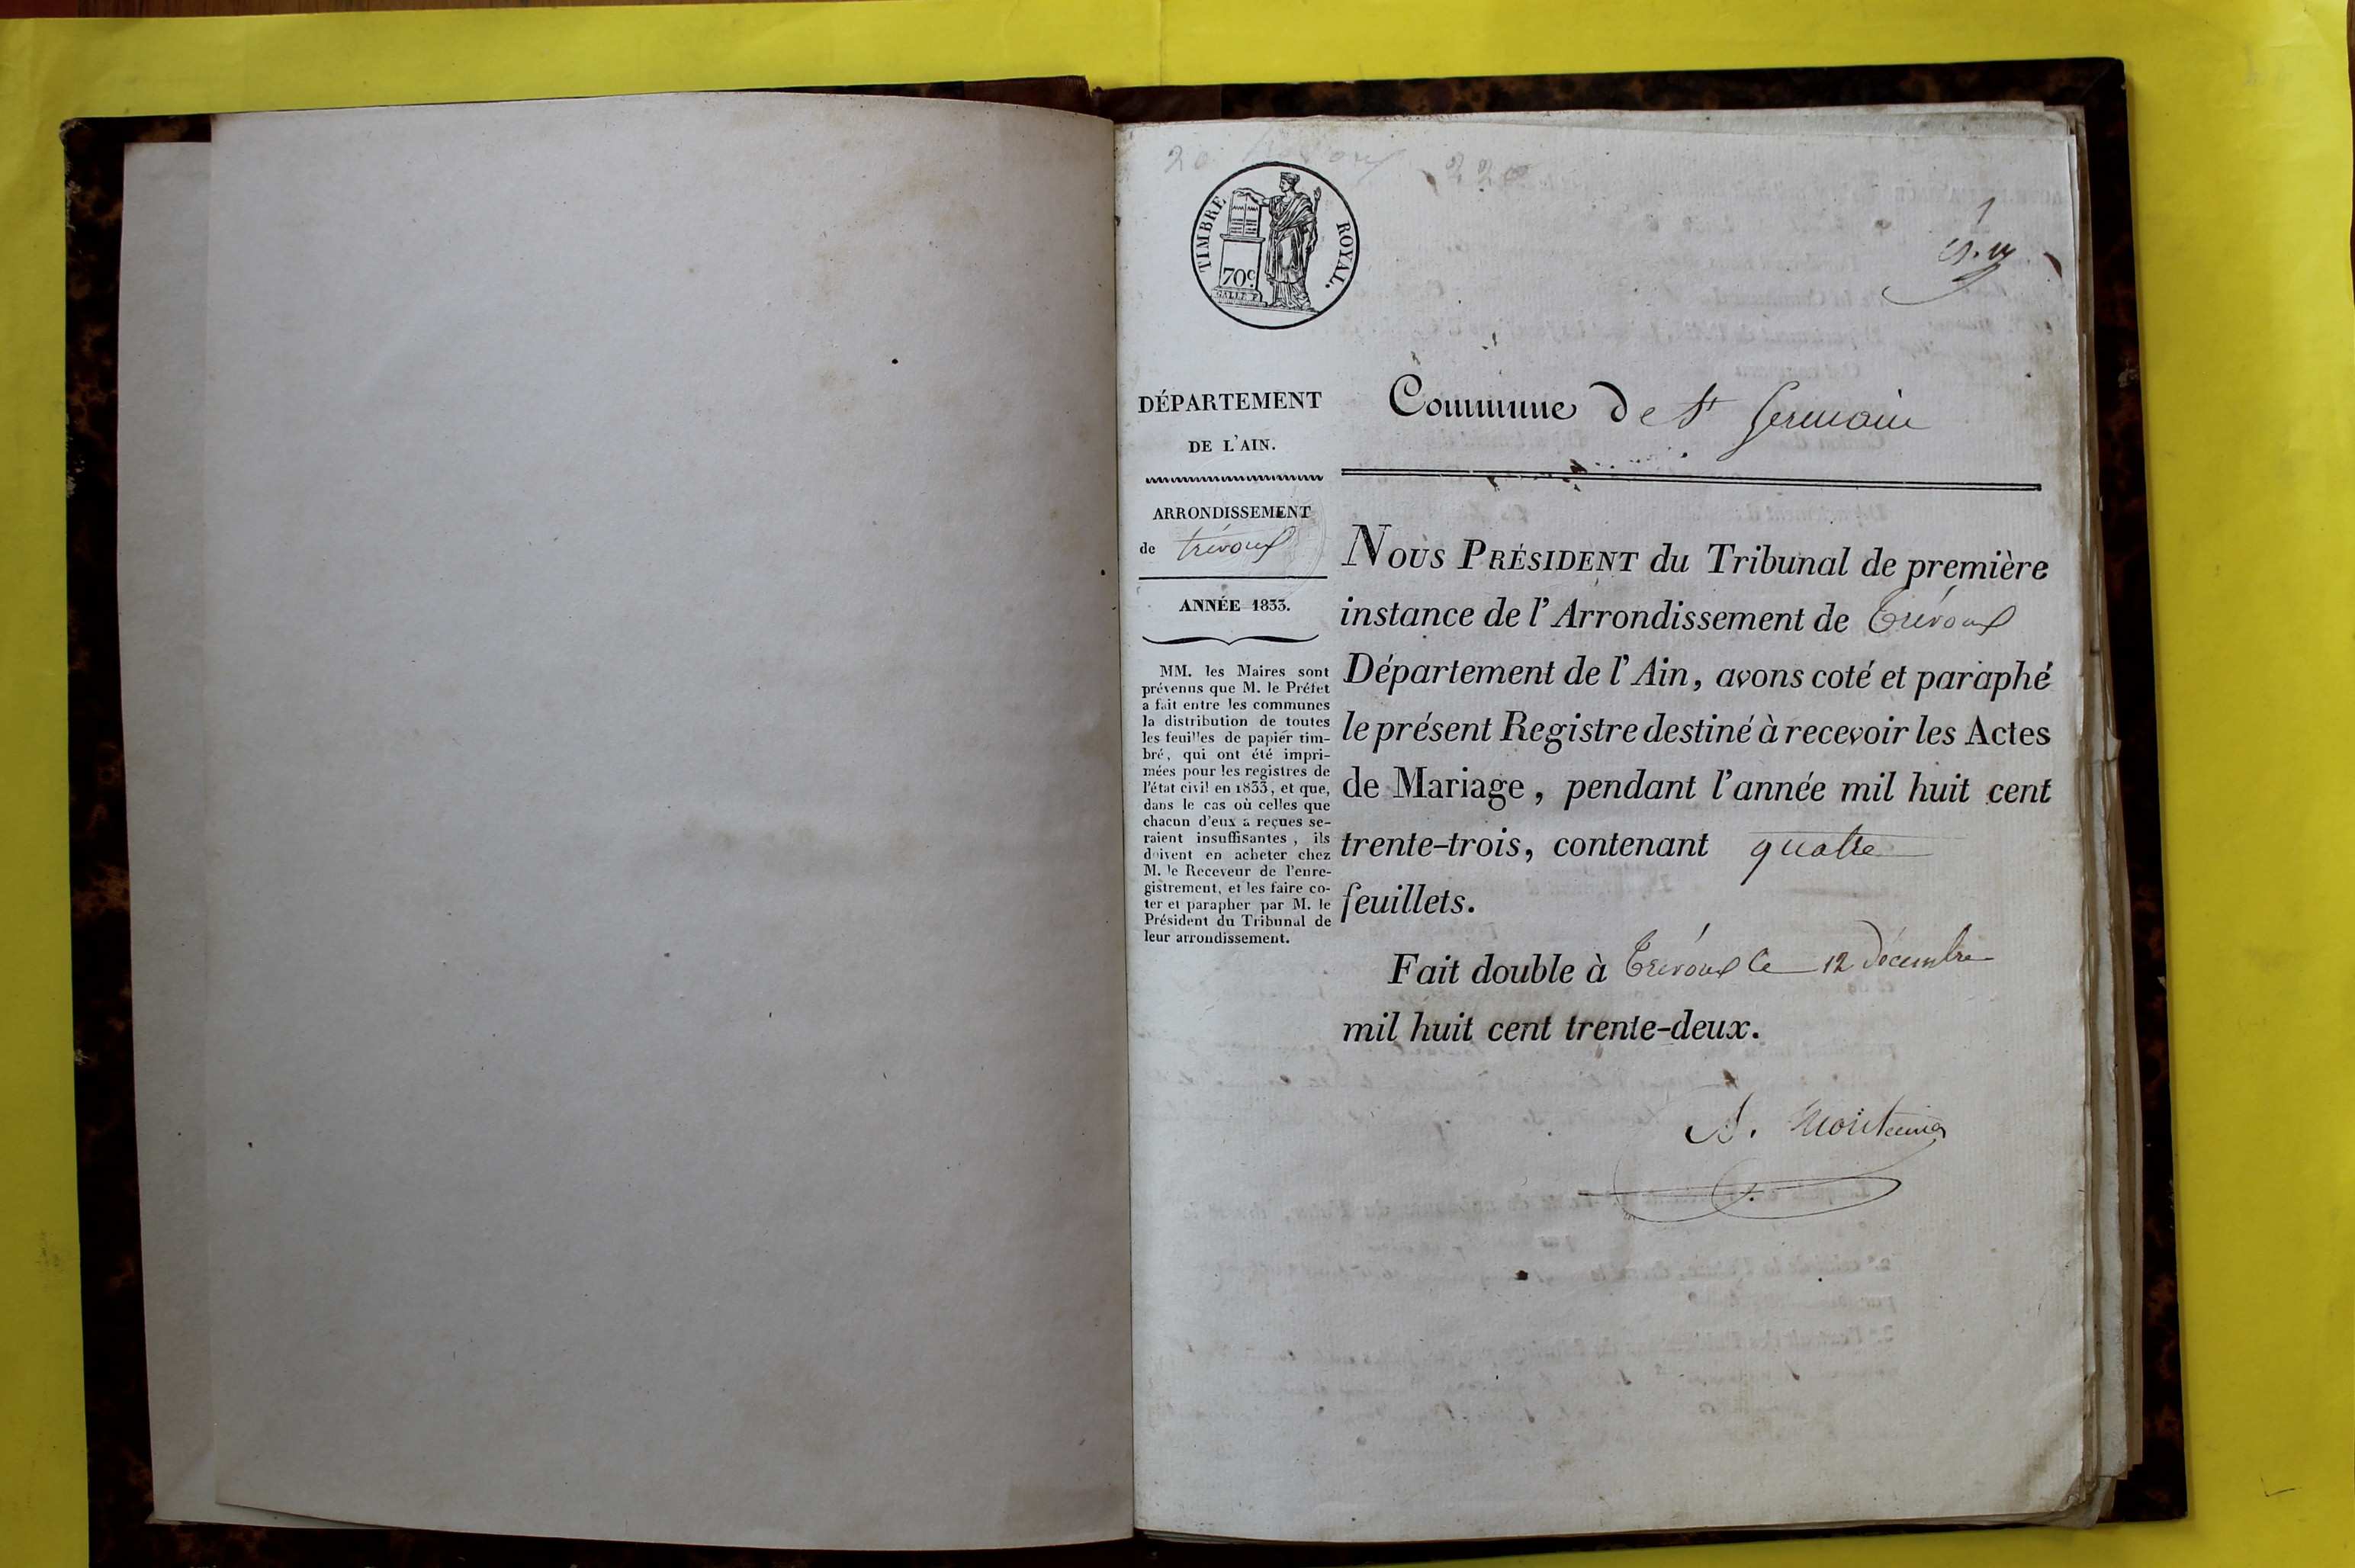 TIMBRE ROYAL.
70c
GALLE F.
1
Commune de St Germain
DÉPARTEMENT
DE L'AIN.
ARRONDISSEMENT
de trévoux
ANNÉE 1833.
MM. les Maires sont
prévenus que M. le Préfet
a fait entre les communes
la distribution de toutes
les feuilles de papier tim-
bré, qui ont été impri-
mées pour les registres de
l'état civil en 1833, et que,
dans le cas où celles que
chacun d'eux a reçues se-
raient insuffisantes, ils
doivent en acheter chez
M. le Receveur de l'enre-
gistrement, et les faire co-
ter et parapher par M. le
Président du Tribunal de
leur arrondissement.
NOUS PRÉSIDENT du Tribunal de première
instance de l'Arrondissement de Trévoux
Département de l'Ain, avons coté et paraphé
le présent Registre destiné à recevoir les Actes
de Mariage, pendant l'année mil huit cent
trente-trois, contenant quatre
feuillets.
Fait double à Trévoux le 12 décembre
mil huit cent trente-deux.